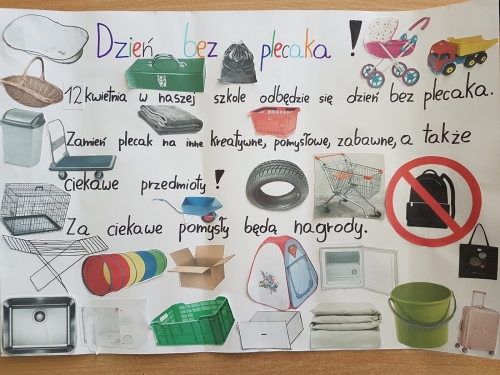 Dzień bez plecaka !
12 kwietnia w naszej szkole odbędzie się dzień bez plecaka.
Zamień plecak na inne kreatywne, pomysłowe, zabawne, a także
ciekawe przedmioty!
Za ciekawe pomysły będą nagrody.